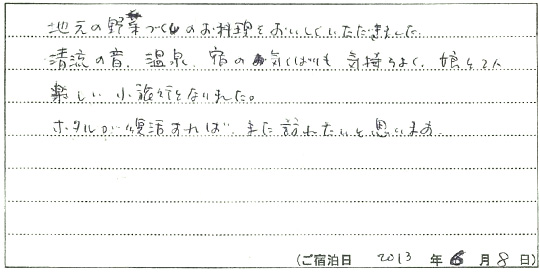 地元の野菜づくしのお料理をおいしくいただきました。
清流の音、温泉、宿のお気くばりも気持ちよく、娘と2人
楽しい小旅行となりました。
ホタルが復活すれば、また訪れたいと思います。
(ご宿泊日 2013 年 6 月 8 日)